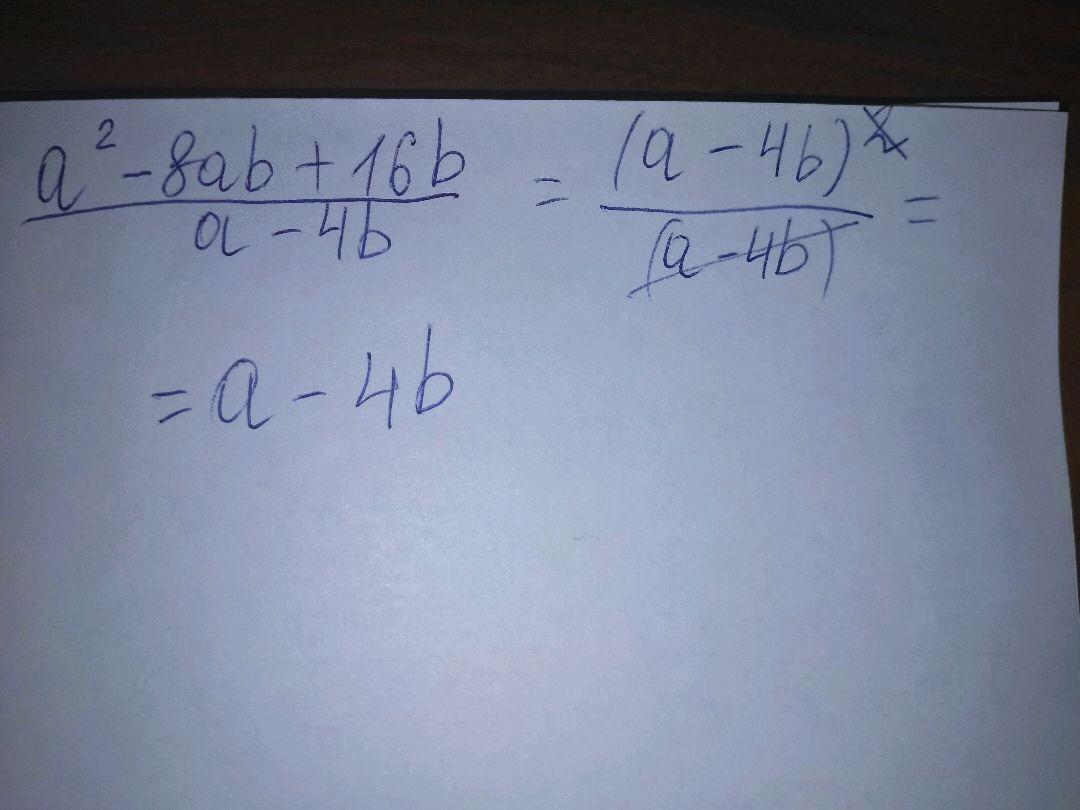 a² - 8ab + 16b / a - 4b = (a - 4b)² / (a - 4b) =
= a - 4b